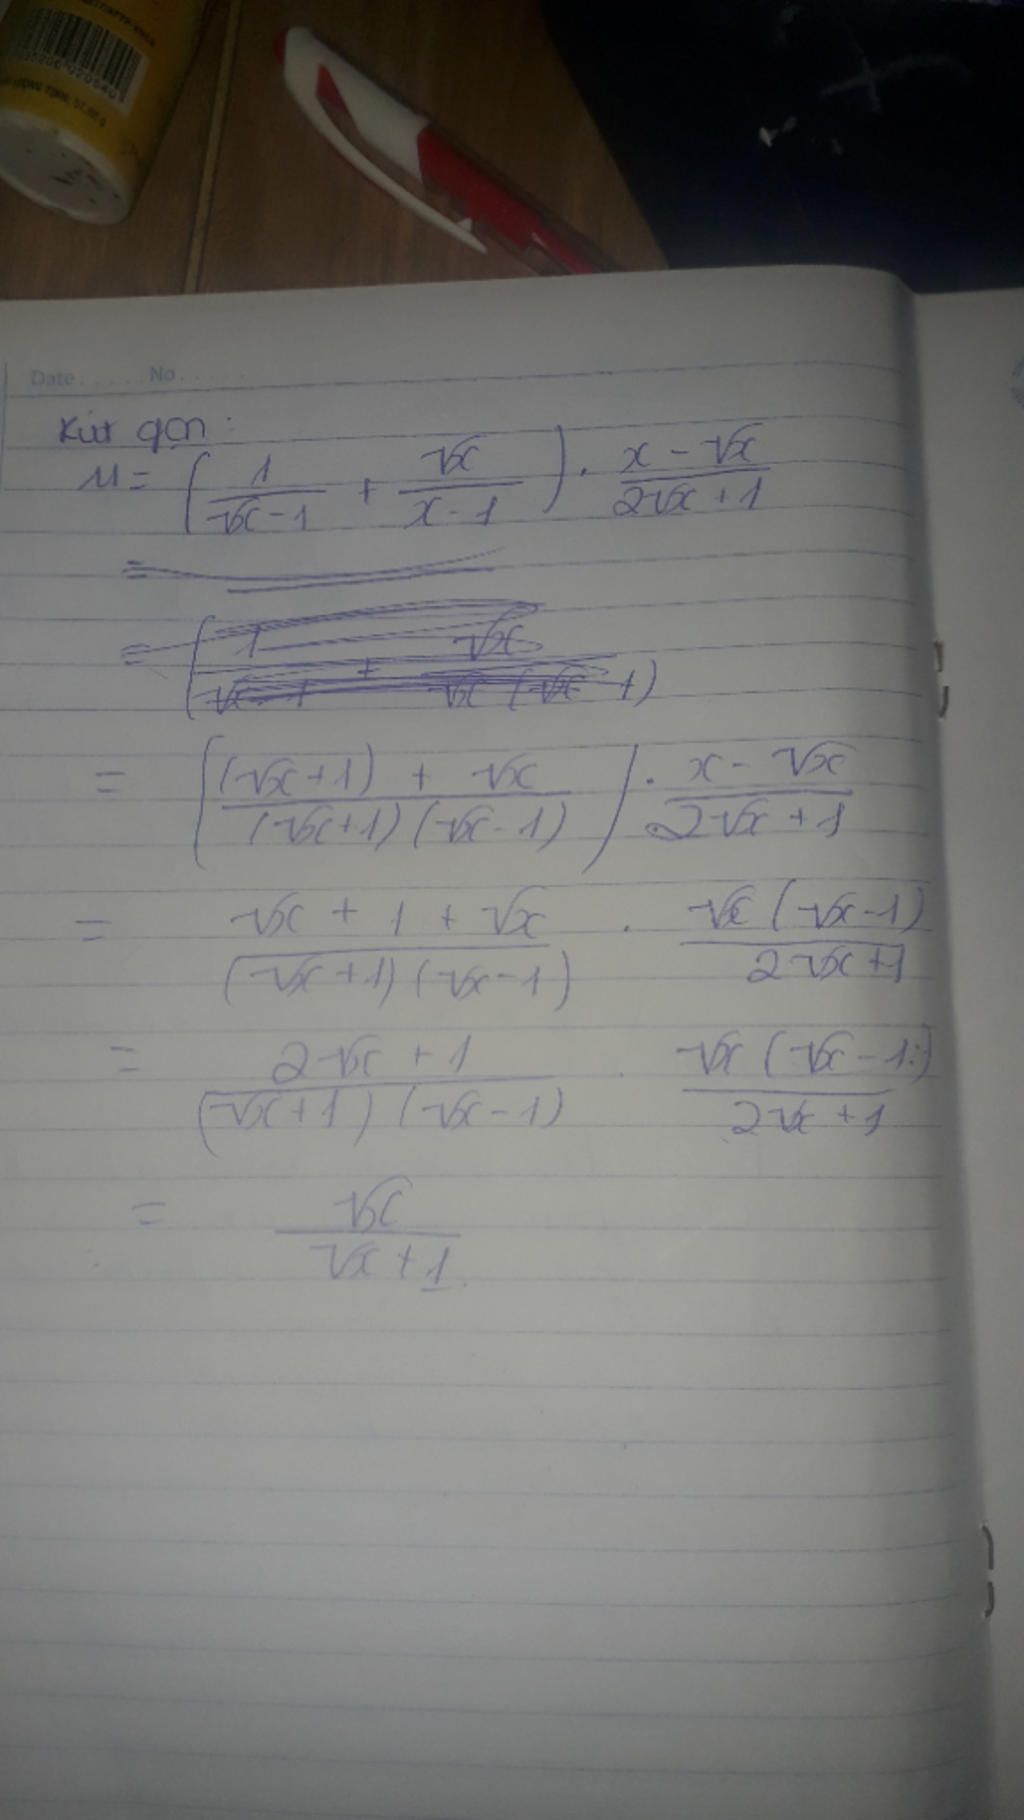 Date ...... No ......
Rút gọn:
M = ( 1/(√x - 1) + √x/(x - 1) ) . (x - √x)/(2√x + 1)
= ( ((√x + 1) + √x)/((√x + 1)(√x - 1)) ) . (x - √x)/(2√x + 1)
= (√x + 1 + √x)/((√x + 1)(√x - 1)) . √x(√x - 1)/(2√x + 1)
= (2√x + 1)/((√x + 1)(√x - 1)) . √x(√x - 1)/(2√x + 1)
= √x/(√x + 1)